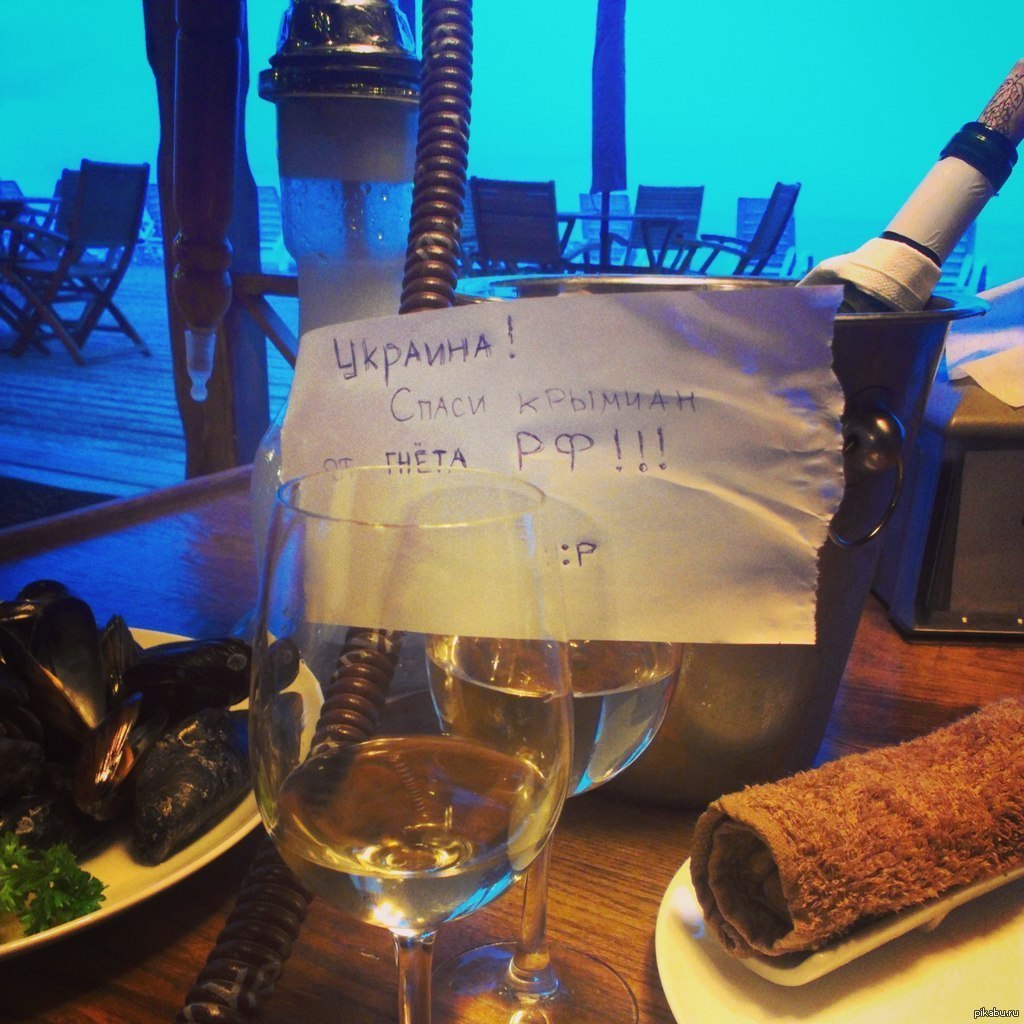 Украина!
Спаси крымчан
от гнёта РФ!!!
:P
pikabu.ru